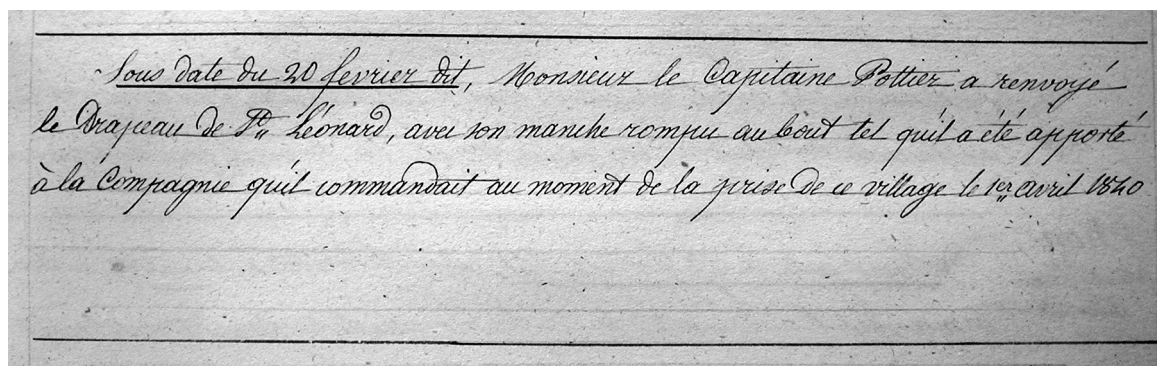 Sous date du 20 fevrier dit, Monsieur le Capitaine Pottier a renvoyé
le Drapeau de St Léonard, avec son manche rompu au bout tel qu'il a été apporté
à la Compagnie qu'il commandait au moment de la prise de ce village le 1er avril 1840